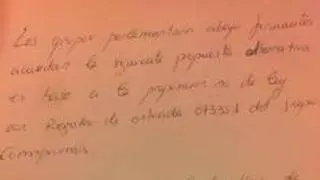 Los grupos parlamentarios abajo firmantes
acuerdan la siguiente propuesta alternativa
en base a la proposición de ley
con Registro de entrada 073351 del
Compromís
de